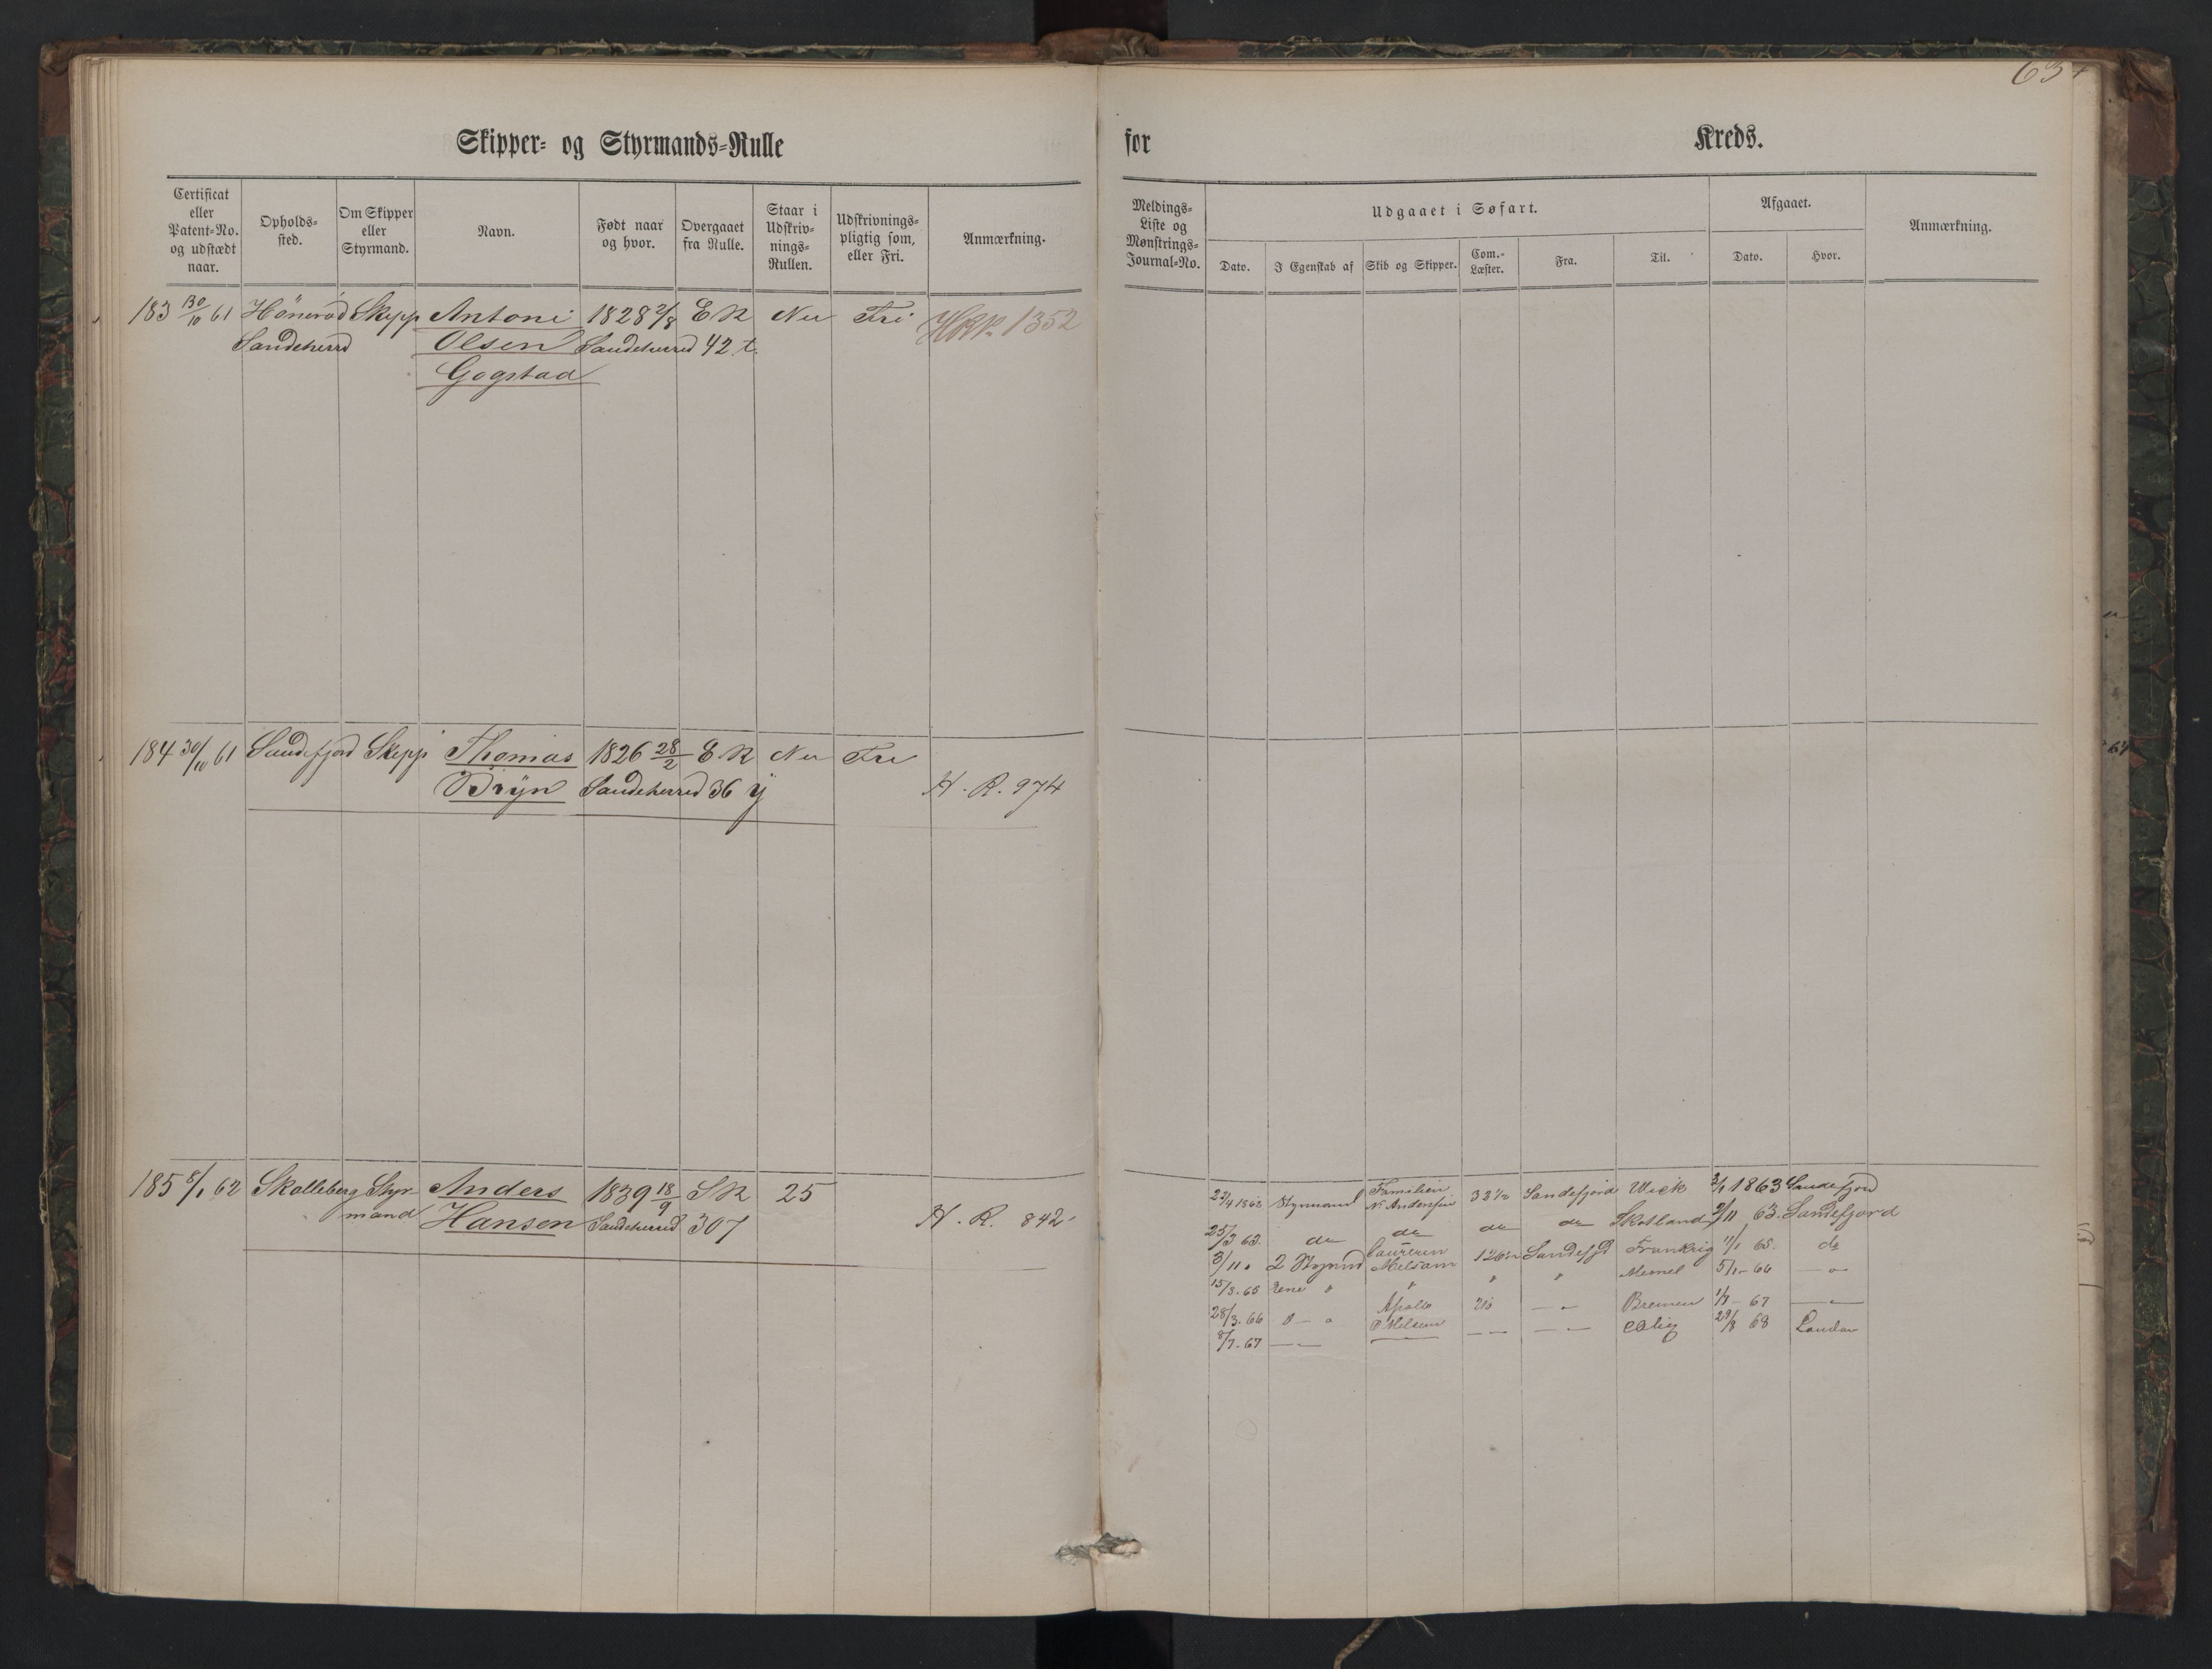 63
Skipper- og Styrmands-Rulle for Kreds.
Certificat eller Patent-No. og udstædt naar.
Opholds-sted.
Om Skipper eller Styrmand.
Navn.
Født naar og hvor.
Overgaaet fra Rulle.
Staar i Udskriv-nings-Rullen.
Udskrivnings-pligtig som, eller Fri.
Anmærkning.
Meldings-Liste og Mønstrings-Journal-No.
Udgaaet i Søfart.
Dato.
I Egenskab af
Skib og Skipper.
Com.-Læster.
Fra.
Til.
Afgaaet.
Dato.
Hvor.
Anmærkning.
183 30/10 61 Hönerød Skipp Antoni 1828 2/8 E R Nei Fri HRR 1352
Sandeherrd Olsen Sandeherred 42 t.
Gogstad
184 30/10 61 Sandefjord Skipp Thomas 1826 28/2 E R Nei Fri
Bryn Sandeherred 36 y H. R. 974
185 8/1 62 Skolleberg Styr- Anders 1839 18/9 S R 25
mand Hansen Sandeherred 307 H. R. 842
27/4 1862 Styrmand Familien N. Andersen 32 1/2 Sandefjord Wick 3/1 1863 Sandefjord
25/3 63. do do do do Skotland 2/11 63. Sandefjord
3/11 " 2 Styrmd Laurenn Melsom 126 1/2 Sandefjd Frankrig 11/1 65. do
15/3. 65 " " " " Memel 5/1 - 66 — " —
28/3. 66 " — " Apollo — " — Bremen 1/7 - 67 — " —
P Melsom
8/7. 67 — " — — " — — " — — " — 29/8 68 London